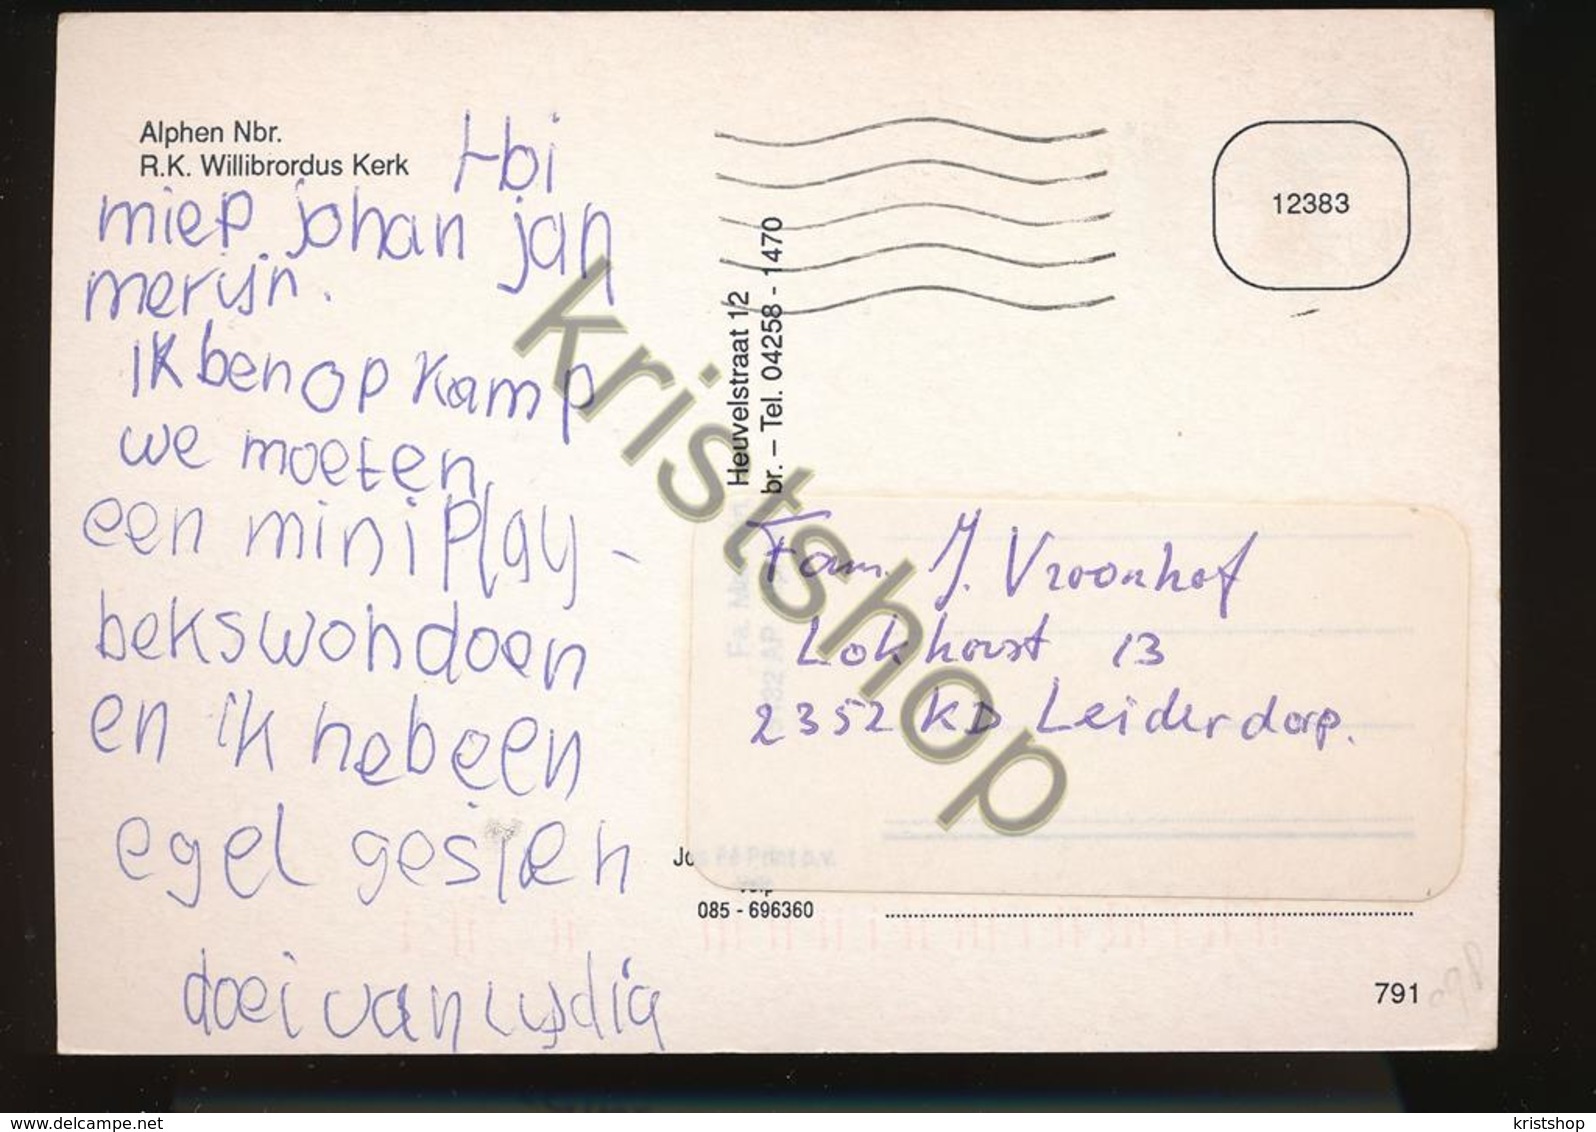 Alphen Nbr.
R.K. Willibrordus Kerk
Hoi
miep johan jan
merijn.
ik ben op kamp
we moeten
een mini Play-
bekswohdoen
en ik heb een
egel gesien
doei van Lydia
12383
Heuvelstraat 12
br. – Tel. 04258 - 1470
Fam. J. Vroonhof
Lokhorst 13
2352 KD Leiderdorp.
085 - 696360
791
kristshop
www.delcampe.net
kristshop